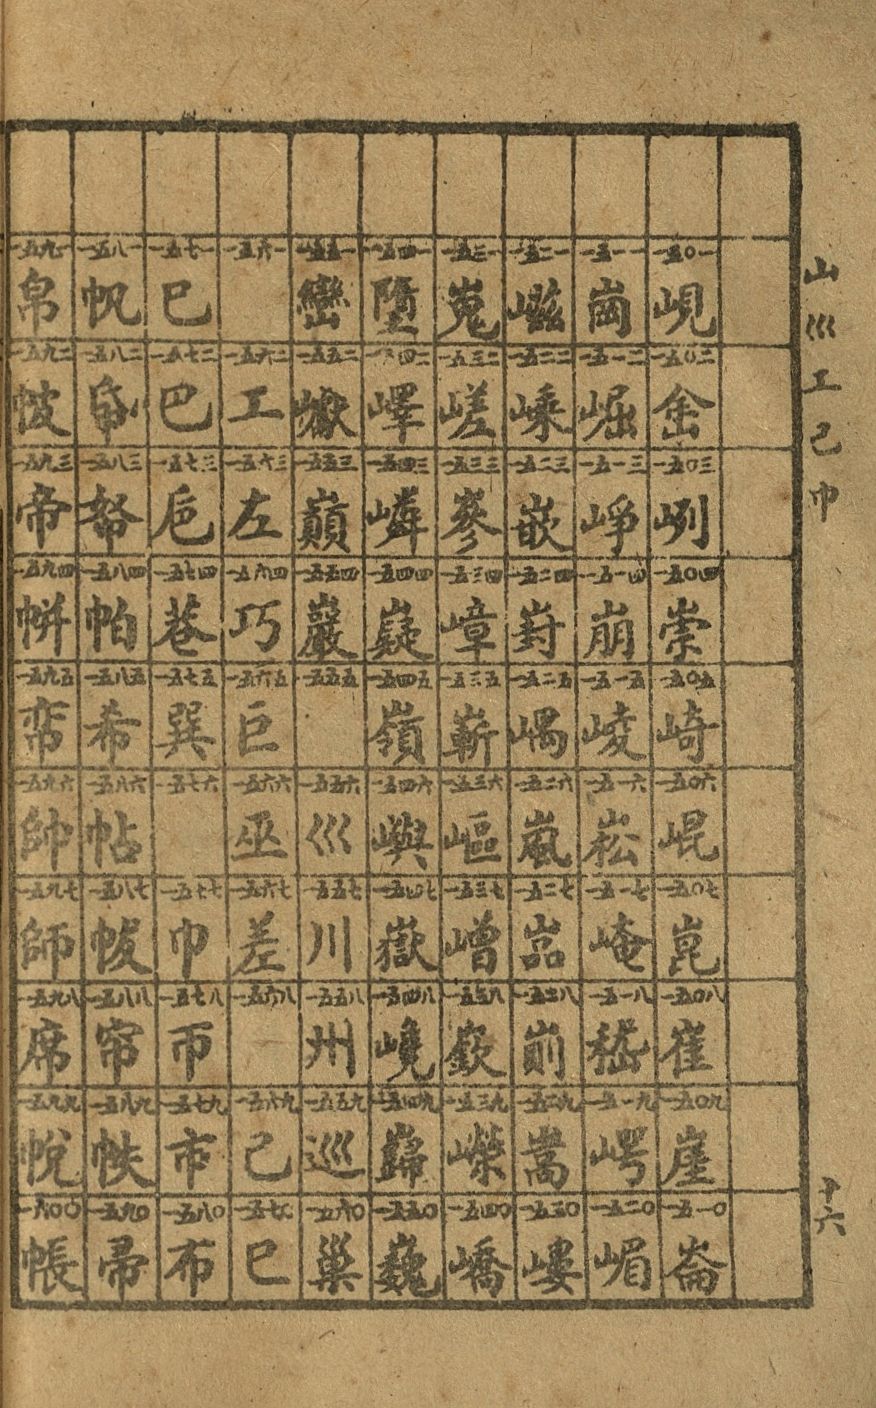 山巛工己巾
十六
一五〇一 峴 一五〇二 峹 一五〇三 峢 一五〇四 崇 一五〇五 崎 一五〇六 崐 一五〇七 崑 一五〇八 崔 一五〇九 崖 一五一〇 崙
一五一一 崗 一五一二 崛 一五一三 崢 一五一四 崩 一五一五 崚 一五一六 崧 一五一七 崦 一五一八 嵇 一五一九 崿 一五二〇 嵋
一五二一 嵫 一五二二 嵊 一五二三 嵌 一五二四 崶 一五二五 嵎 一五二六 嵐 一五二七 嵒 一五二八 崱 一五二九 嵩 一五三〇 嶁
一五三一 嵬 一五三二 嵯 一五三三 嵾 一五三四 嶂 一五三五 嶄 一五三六 嶇 一五三七 嶒 一五三八 嶔 一五三九 嶸 一五四〇 嶠
一五四一 嶞 一五四二 嶧 一五四三 嶙 一五四四 嶷 一五四五 嶺 一五四六 嶼 一五四七 嶽 一五四八 嶢 一五四九 巋 一五五〇 巍
一五五一 巒 一五五二 巘 一五五三 巔 一五五四 巖 一五五五 一五五六 巛 一五五七 川 一五五八 州 一五五九 巡 一五六〇 巢
一五六一 一五六二 工 一五六三 左 一五六四 巧 一五六五 巨 一五六六 巫 一五六七 差 一五六八 一五六九 己 一五七〇 已
一五七一 巳 一五七二 巴 一五七三 巵 一五七四 巷 一五七五 巽 一五七六 一五七七 巾 一五七八 帀 一五七九 市 一五八〇 布
一五八一 帆 一五八二 帋 一五八三 帑 一五八四 帕 一五八五 希 一五八六 帖 一五八七 帗 一五八八 帘 一五八九 帙 一五九〇 帚
一五九一 帛 一五九二 帔 一五九三 帝 一五九四 帡 一五九五 帟 一五九六 帥 一五九七 師 一五九八 席 一五九九 帨 一六〇〇 帳